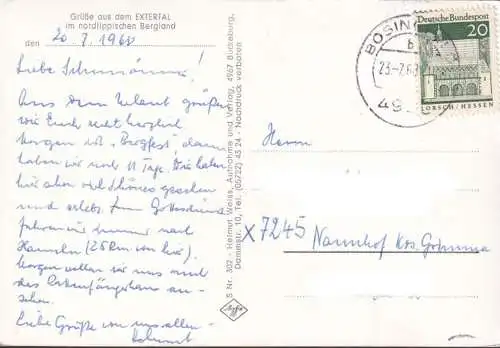 Grüße aus dem EXTERTAL
im nordlippischen Bergland
den 20 7. 1968
Liebe
Aus dem Urlaub grüßen
wir Euch recht herzlich
Morgen ist „Bergfest", dann
haben wir noch 11 Tage. Wir haben
hier schon viel Schönes gesehen
und erlebt. Zum Gottesdienst
fahren wir immer nach
Hameln (25 km von hier).
Morgen wollen wir uns mal
das Rattenfängerhaus an-
sehen.
Liebe Grüße von uns allen
S Nr. 302 - Helmut Weiss, Aufnahme und Verlag, 4967 Bückeburg,
Dammstr. 10, Tel. (05722) 43 24 - Nachdruck verboten
Agfa
BÖSING
b
23.-7.68
49
Deutsche Bundespost
20
LORSCH/HESSEN
Herrn
X 7245 Naunhof Krs. Grimma